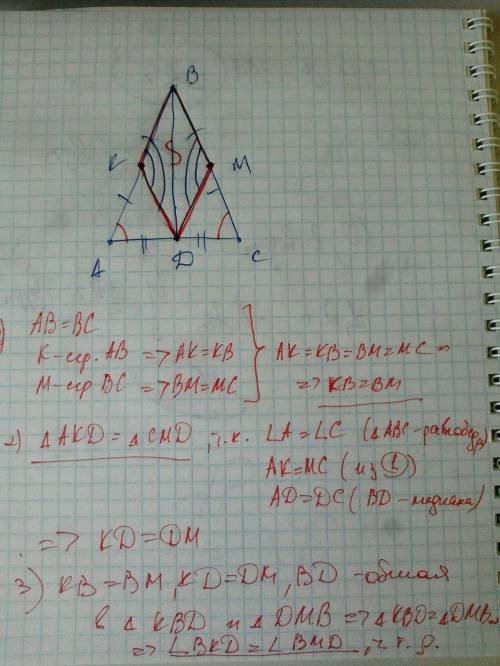 B
K
M
A
D
C
1) AB=BC
K-сер. AB => AK=KB
M-сер BC => BM=MC
AK=KB=BM=MC =>
=> KB=BM
2) ΔAKD=ΔCMD, т.к. ∠A=∠C (ΔABC-равнобедр)
AK=MC (из ①)
AD=DC (BD-медиана)
=> KD=DM
3) KB=BM, KD=DM, BD-общая
в ΔKBD и ΔDMB => ΔKBD=ΔDMB=>
=> ∠BKD=∠BMD, ч.т.д.